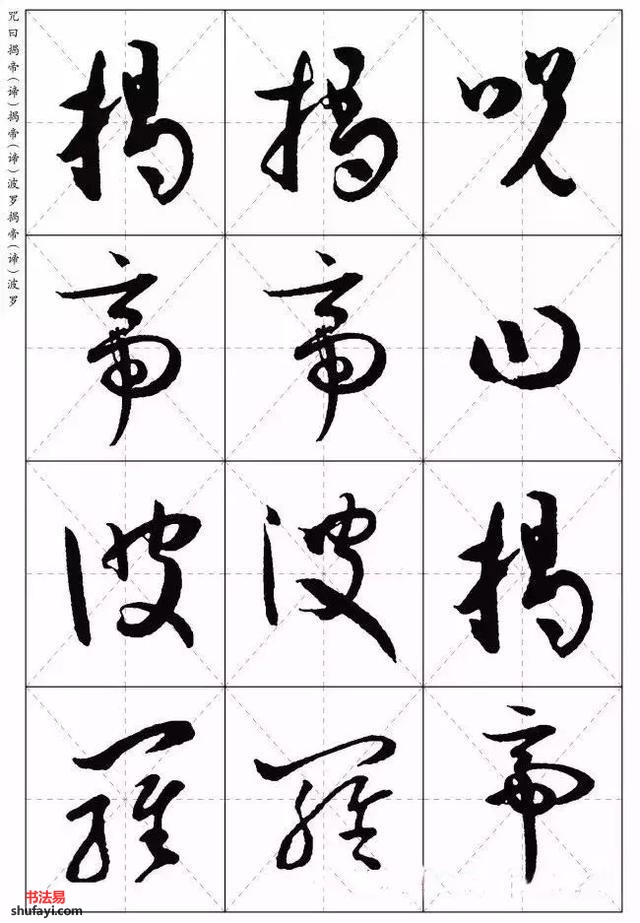 咒曰揭帝(谛)揭帝(谛)波罗揭帝(谛)波罗
咒曰揭帝
揭帝波羅
揭帝波羅
书法易
shufayi.com